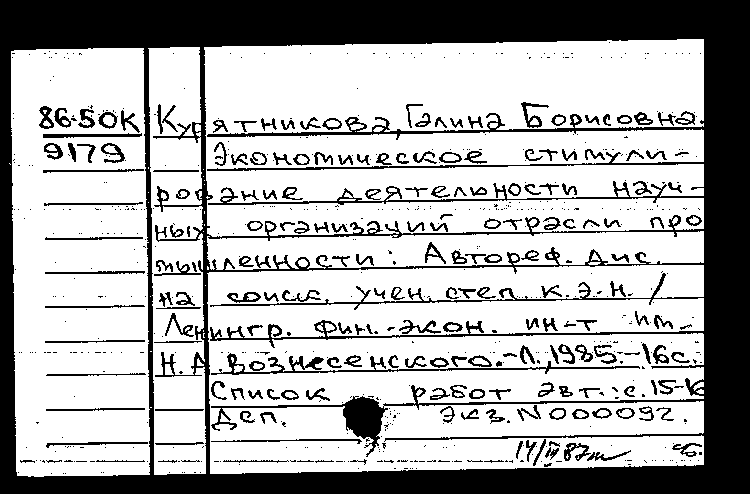 86-50К Курятникова, Галина Борисовна.
9179 Экономическое стимули-
рование деятельности науч-
ных организаций отрасли про
мышленности: Автореф. дис.
на соиск. учен. степ. к.э.н. /
Ленингр. фин.-экон. ин-т им.
Н.А. Вознесенского.-Л.,1985.-16с.
Список работ авт.: с.15-16
Деп. экз. N000092.